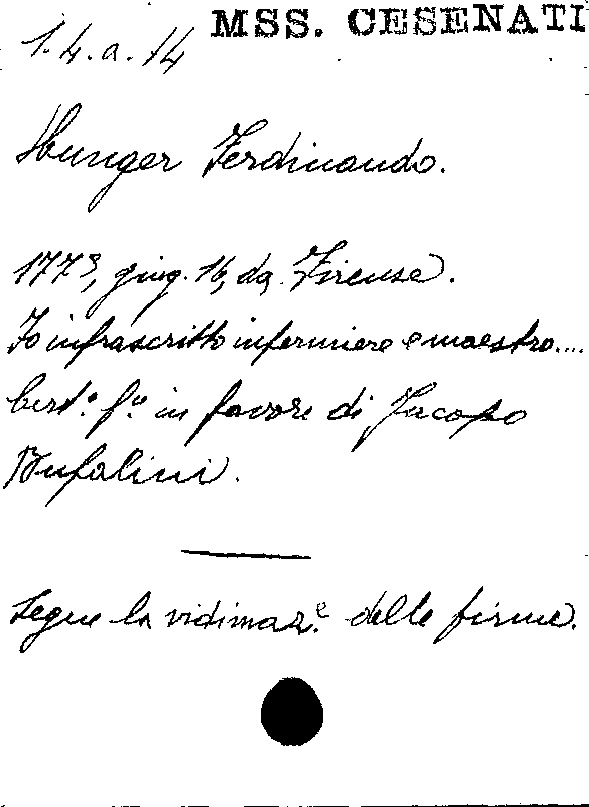 MSS. CESENATI
1.4.a.14
Hunger Ferdinando.
1773, giug. 16, da Firense.
Io infrascritto infermiere e maestro....
Cert.° f.° in favore di Jacopo
Bufalini.
Segue la vidimaz.e delle firme.